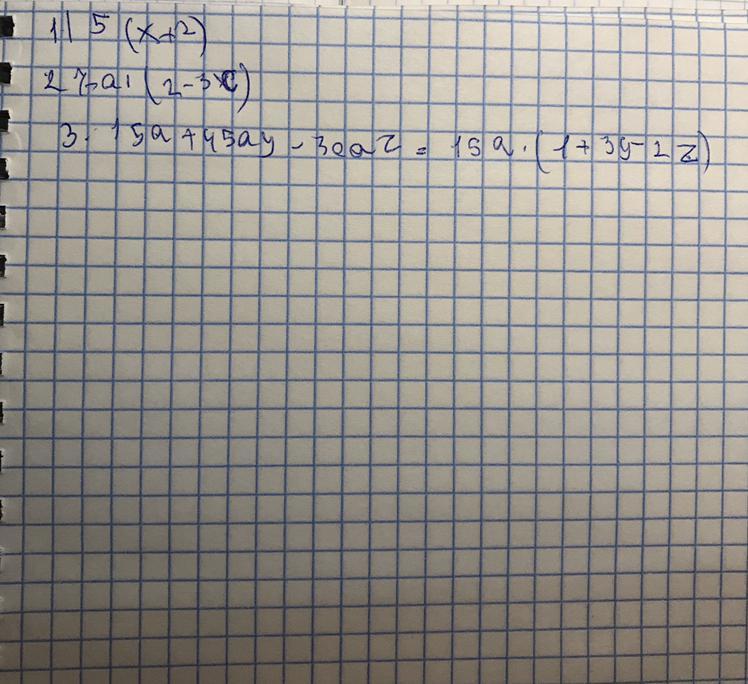 1) 5 (x+2)
2 7a · (2-3x)
3. 15a + 45ay - 30az = 15a · (1 + 3y - 2z)